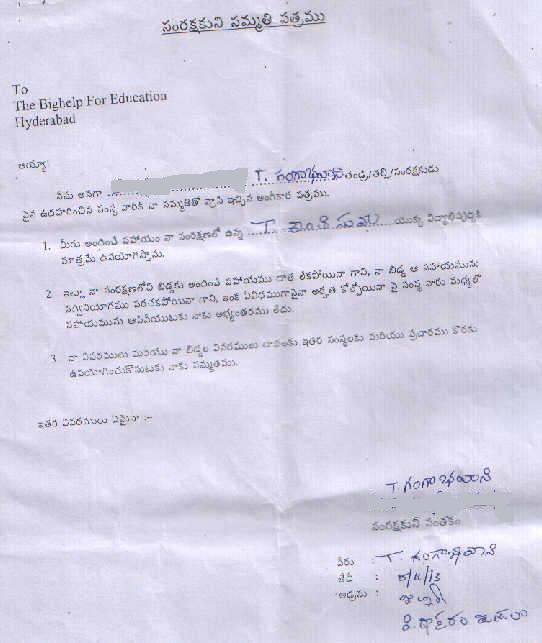 సంరక్షకుని సమ్మతి పత్రము
To
The Bighelp For Education
Hyderabad
అయ్యా
నేను అనగా T. గంగాభవాని తండ్రి/తల్లి/సంరక్షకుడు
పైన ఉదహరించిన సంస్థ వారికి నా సమ్మతితో వ్రాసి ఇచ్చిన అంగీకార పత్రము.
1. మీరు అందించే సహాయం నా సంరక్షణలో ఉన్న T. యొక్క విద్యాభివృద్ధికి
మాత్రమే ఉపయోగిస్తాను.
2. ఇట్లు నా సంరక్షణలోని బిడ్డకు అందించే సహాయము దాత లేకపోయినా గాని, నా బిడ్డ ఆ సహాయమును
సద్వినియోగము పరచకపోయినా గాని, ఇంక ఏవిధముగానైనా అర్హత కోల్పోయినా పై సంస్థ వారు మధ్యలో
సహాయమును ఆపివేయుటకు నాకు అభ్యంతరము లేదు.
3. నా వివరములు మరియు నా బిడ్డల వివరములు దాతలకు ఇతర సంస్థలకు మరియు ప్రచారము కొరకు
ఉపయోగించుకొనుటకు నాకు సమ్మతము.
ఇతర వివరములు ఏమైనా :-
T. గంగాభవాని
సంరక్షకుని సంతకం
పేరు : T. గంగాభవాని
తేదీ : /4/13
అడ్రసు :